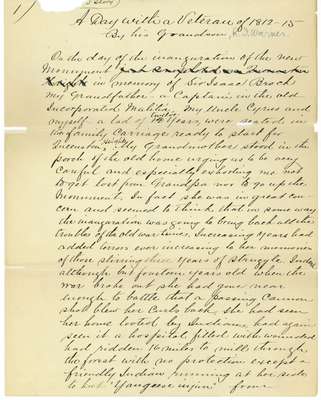 1)
(Story)
A Day with a Veteran of 1812-15
By his Grandson R. S. Warner
On the day of the inauguration of the new
Monument
in memory of Sir Isaac Brock
my Grandfather a Captain in the old
Incorporated Militia, My Uncle Cyrus and
myself a lad of Years, were seated in
the family Carriage ready to start for
Queenston Heights. My Grandmother stood in the
porch of the old home urging us to be very
careful and especially exhorting me not
to get lost from Grandpa nor to go up the
Monument. In fact she was in great con
cern and seemed to think that in some way
the inauguration was going to bring back all the
troubles of the old war times. Increasing years had
added terrors ever increasing to her memories
of those stirring three years of struggle. Indeed
although but fourteen years old when the
war broke out she had gone near
enough to battle that a passing Cannon
shot blew her Curls back, she had seen
her home looted by Indians, had again
seen it a hospital filled with wounded
had ridden 16 miles to mill through
the forest with no protection except a
friendly Indian running at her side
to hol "Yangeese injin" from